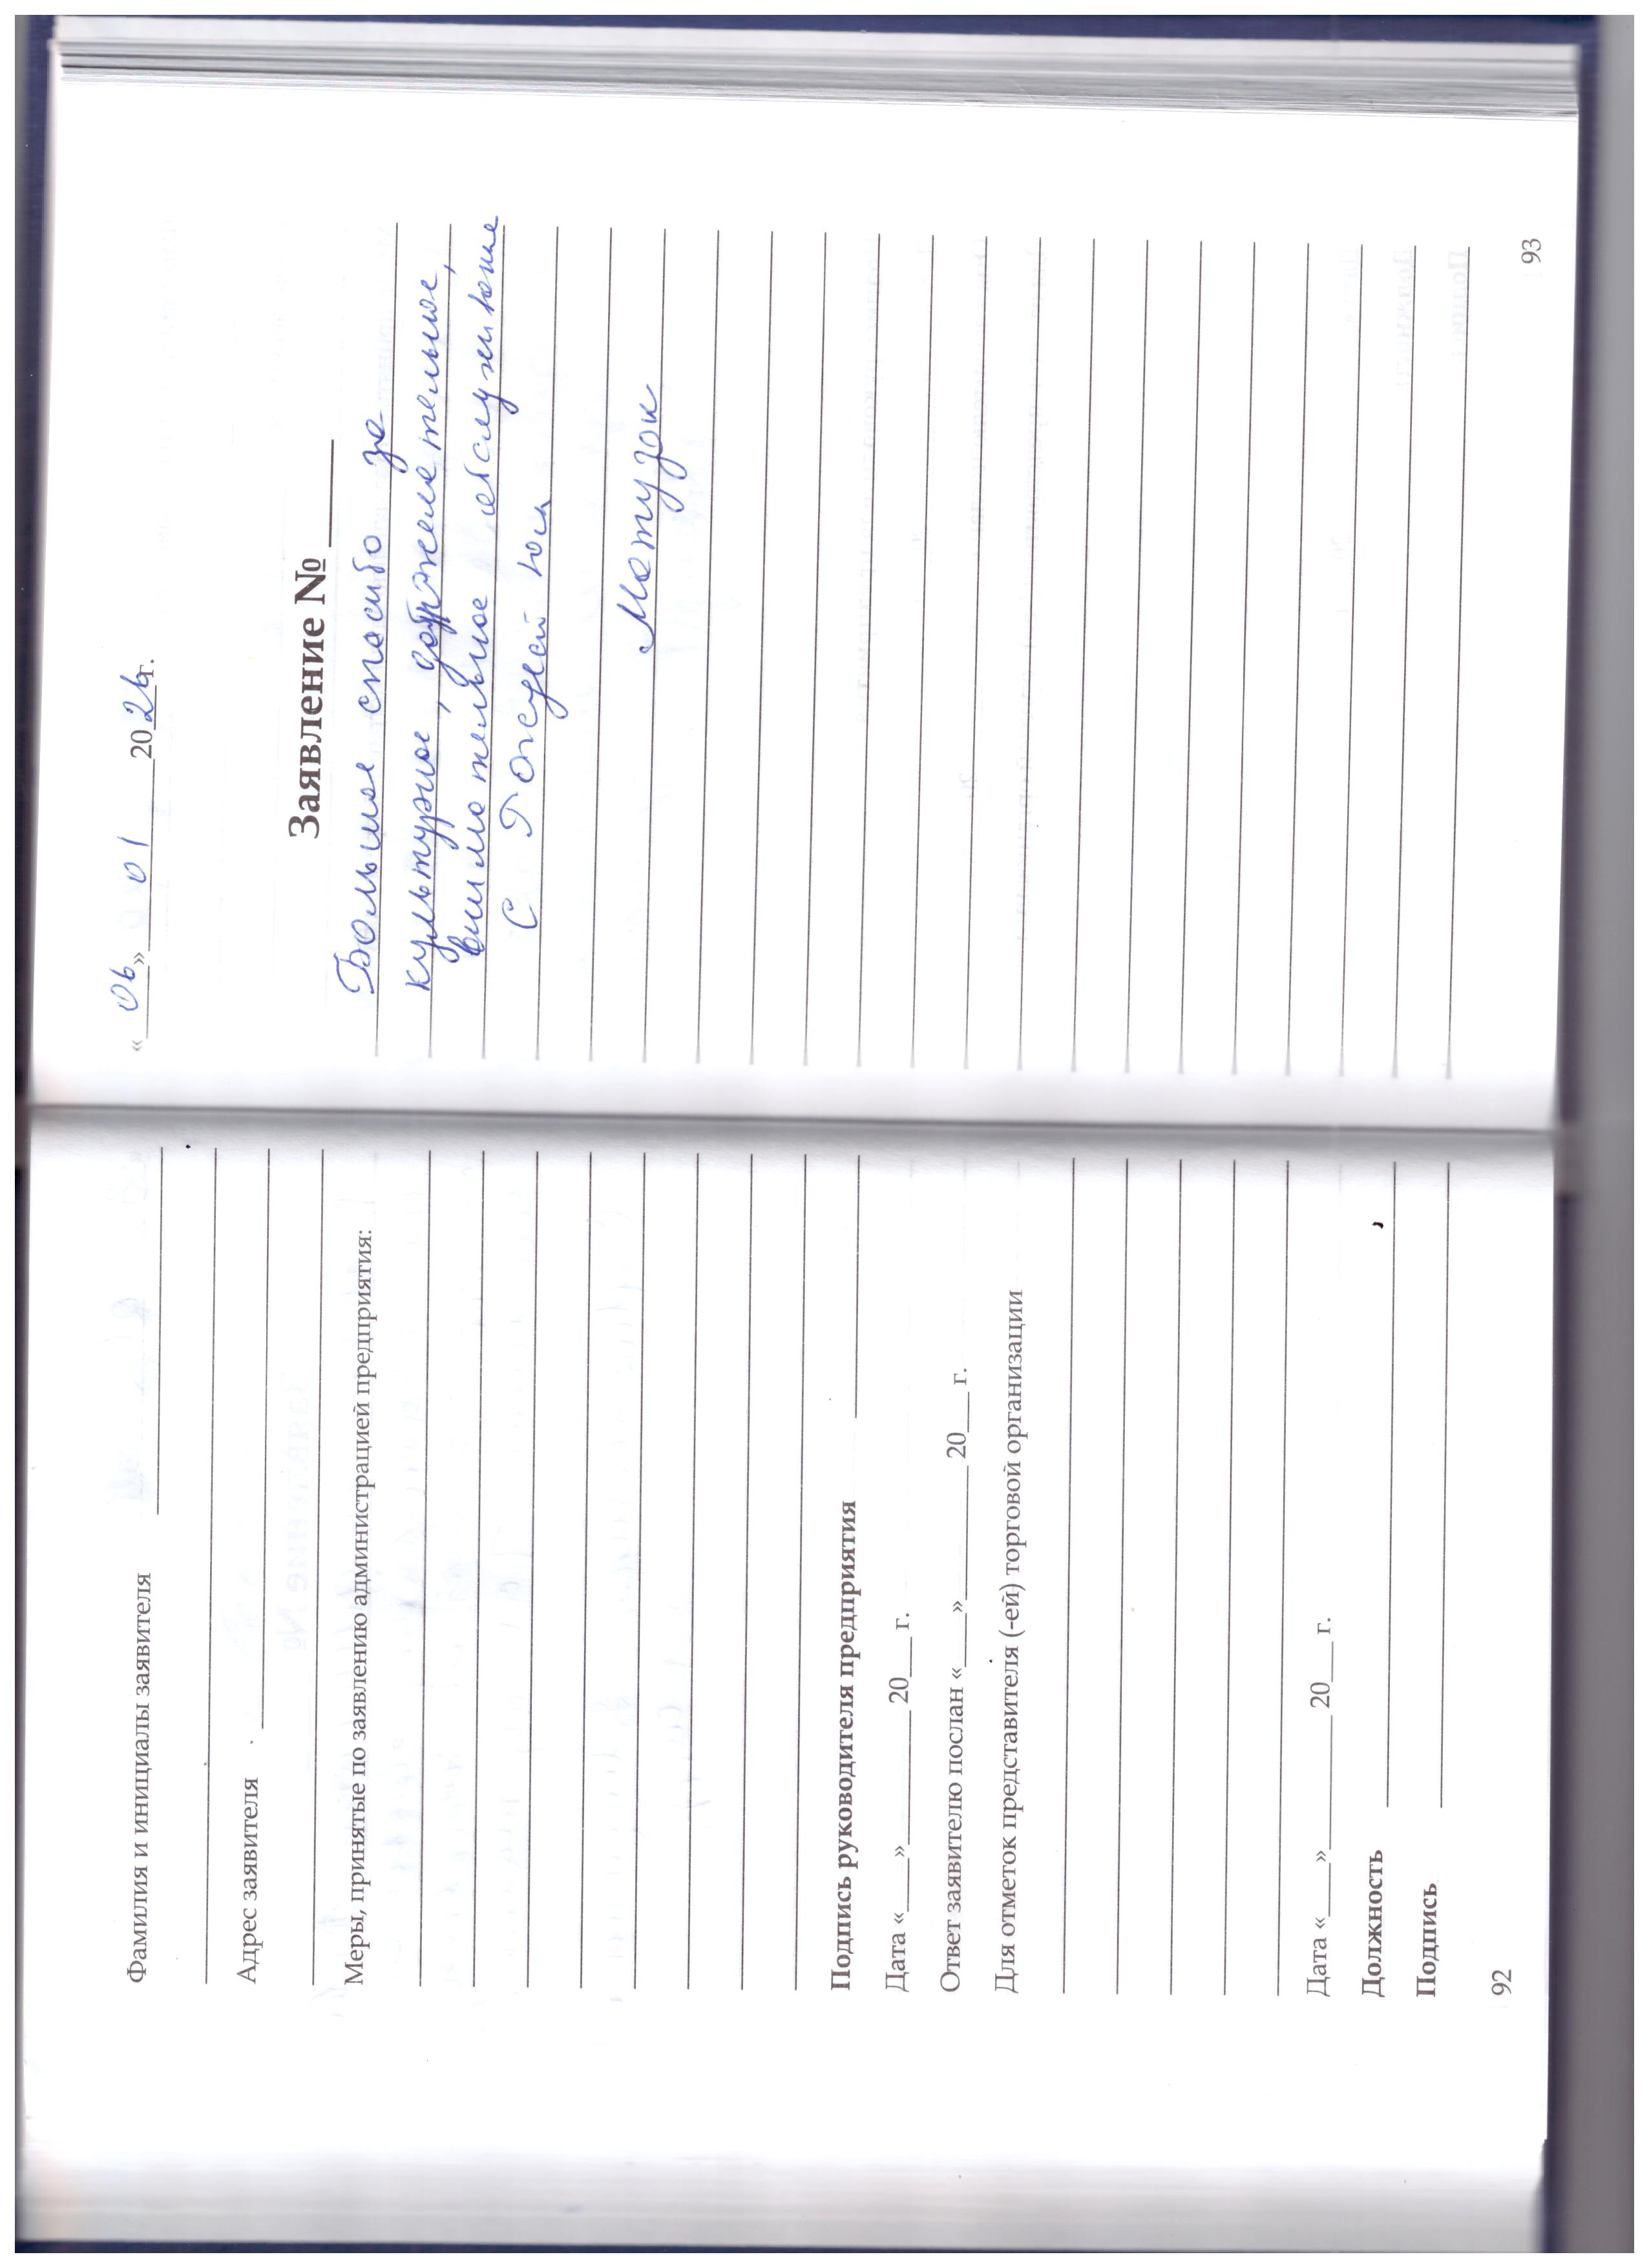 Фамилия и инициалы заявителя
Адрес заявителя
Меры, принятые по заявлению администрацией предприятия:
Подпись руководителя предприятия
Дата «____»__________ 20___ г.
Ответ заявителю послан «____»__________ 20___ г.
Для отметок представителя (-ей) торговой организации
Дата «____»__________ 20___ г.
Должность
Подпись
92
«06» 01 2026г.
Заявление № ____
Большое спасибо за
культурное, доброжелательное,
внимательное обслуживание
С
Матузок
93